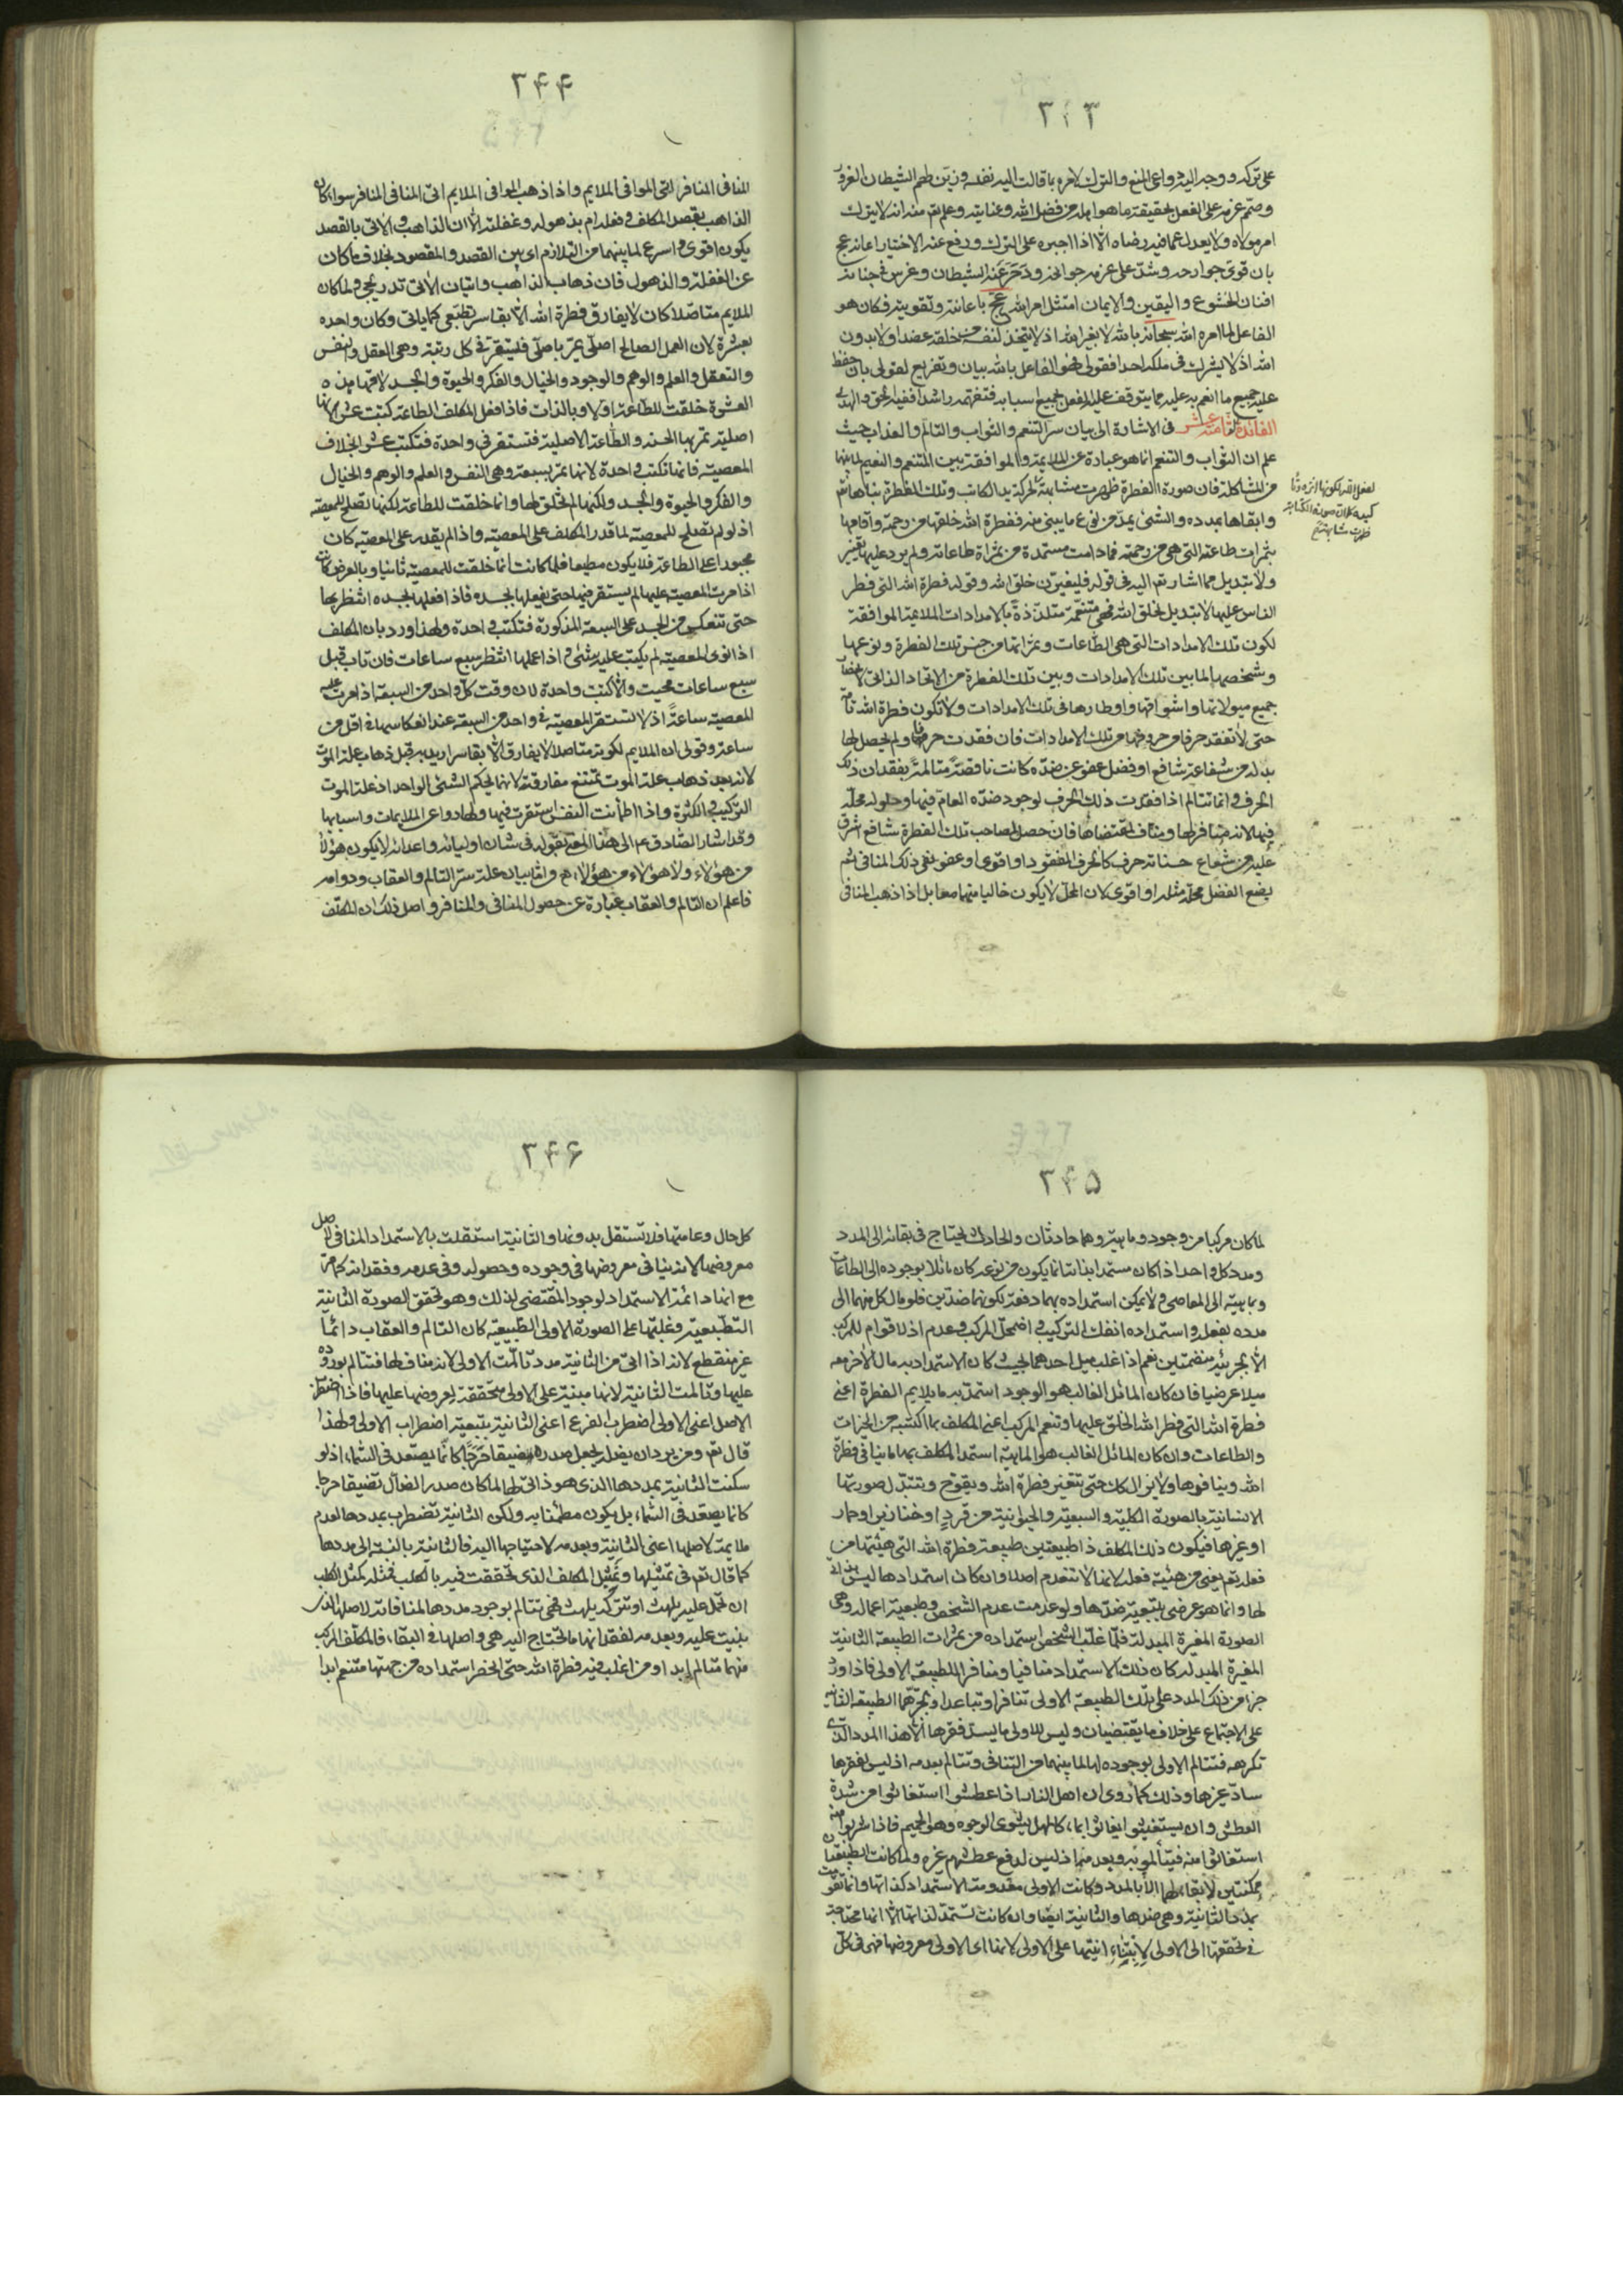 ٣٤٣
على تركه ووجد اليه دواعى المنع والترك لامره بما قالت اليه نفسه وزين لهم الشيطان الغرور
وصمم عزمه على الفعل بحقيقة ما هو اهله من فضل الله وعنايته وعلم تع منه انه لا يترك
امر مولاه ولا يعدل عما فيه رضاه الا اذا اجبره على الترك ورفع عنه الاختيار اعانه عج
بان قوى جوارحه وشد على عزمه جوانحه ودحر عنه الشيطان وغرس فى جنانه
افنان الخشوع واليقين والايمان امتثل امر الله عج باعانته وتقويته فكان هو
الفاعل لما امره الله سبحانه بالله لا بغير الله اذ لا يتخذ لنفسه من خلقه عضدا ولا بدون
الله اذ لا يشرك فى ملكه احدا فقولى فهو الفاعل بالله بيان وتفريع لقولى بان حفظ
عليه جميع ما انعم به عليه مما يتوقف عليه الفعل بجميع اسبابه فتفهم راشدا ففيه الحق والهدى
الفائدة الثامنة عشر فى الاشارة الى بيان سر التنعم والثواب والتالم والعذاب حيث
علم ان الثواب والتنعم انما هو عبارة عن الملايمة والموافقة بين المتنعم والنعيم لما بينهما
من المشاكلة فان صورة الفطرة ظهرت مشابهة لحركة يد الكاتب وتلك الفطرة بناها تع
وابقاها بمدده والشئ يمد من نوع ما يبنى منه ففطرة الله خلقها من رحمته واقامها
بثمرات طاعته التى هى من رحمته فما دامت مستمدة من ثمراة طاعاته ولم يرد عليها تغيير
ولا تبديل مما اشار تع اليه فى قوله فليغيرن خلق الله وقوله فطرة الله التى فطر
الناس عليها لا تبديل لخلق الله فهى متنعمة متلذذة بالامدادات الملايمة الموافقة
لكون تلك الامدادات التى هى الطاعات وثمراتها من جنس تلك الفطرة ونوعها
وشخصها لما بين تلك الامدادات وبين تلك الفطرة من الاتحاد الذاتى لانحصار
جميع ميولاتها واشواقها واوطارها فى تلك الامدادات ولا تكون فطرة الله تامة
حتى لا تفقد حرفا من حروفها من تلك الامدادات فان فقدت حرفا منها ولم يحصل لها
بدله من شفاعة شافع او فضل عفو عن ضده كانت ناقصة متالمة بفقدان ذلك
الحرف وانما تتالم اذا فقدت ذلك الحرف لوجود ضده العام فيها وحلوله محله
فيها لانه منافر لها ومناف لمقتضاها فان حصل لصاحب تلك الفطرة شافع اشرق
عليه من شعاع حسناته حرف كالحرف المفقود او اقوى او عفو نفى ذلك المنافى ثم
يضع الفضل محله مثله او اقوى لان المحل لا يكون خاليا منهما معا بل اذا ذهب المنافى
٣٤٤
المنافى المنافر اتى الموافى الملايم واذا ذهب الموافى الملايم اتى المنافى المنافر سواء كان
الذاهب بقصد المكلف وفعله ام بذهوله وغفلته الا ان الذاهب والاتى بالقصد
يكون اقوى واسرع لما بينهما من التلازم اى بين القصد والمقصود بخلاف ما كان
عن الغفلة والذهول فان ذهاب الذاهب واتيان الاتى تدريجى ولما كان
الملايم متاصلا كان لا يفارق فطرة الله الا بقاسر تطبعى كما ياتى وكان واحده
بعشرة لان العمل الصالح اصلى يمر باصلى فليستقر فى كل رتبة وهى العقل والنفس
والتعقل والعلم والوهم والوجود والخيال والفكر والحيوة والجسد لانها هذه
العشرة خلقت للطاعة اولا وبالذات فاذا فعل المكلف الطاعة كتبت عشرا لانها
اصلية تمر بها الحسنة والطاعة الاصلية فتستقر فى واحدة فتكتب عشرا بخلاف
المعصية فانها تكتب واحدة لانها تمر بسبعة وهى النفس والعلم والوهم والخيال
والفكر والحيوة والجسد ولكنها لم تخلق لها وانما خلقت للطاعة لكنها تصلح للمعصية
اذ لو لم تصلح للمعصية لما قدر المكلف على المعصية واذا لم يقدر على المعصية كان
مجبورا على الطاعة فلا يكون مطيعا فلما كانت انما خلقت للمعصية ثانيا وبالعرض كانت
اذا مرت المعصية عليها لم يستقر فيها حتى يفعلها بجسده فاذا فعلها بجسده انتظر بها
حتى تنعكس من الجسد على السبعة المذكورة فتكتب واحدة ولهذا ورد بان المكلف
اذا نوى المعصية لم يكتب عليه شئ واذا عملها انتظر سبع ساعات فان تاب قبل
سبع ساعات محيت والا كتبت واحدة لان وقت كل واحد من السبعة اذا مرت عليه
المعصية ساعة اذ لا تستقر المعصية فى واحد من السبعة عند انعكاسها فى اقل من
ساعة وقولى ان الملايم لكونه متاصلا لا يفارق الا بقاسر اريد به قبل ذهاب علة الموت
لانه بعد ذهاب علة الموت تمتنع مفارقته لانها بحكم الشئ الواحد اذ علة الموت
التركيب فى الكثرة واذا اطمأنت النفس استقرت فيها ولها دواعى الملايمات واسبابها
وقد اشار الصادق ع الى هذا المعنى بقوله فى شان اوليائه واعدائه لا يكون هؤلاء
من هؤلاء ولا هؤلاء من هؤلاء واما بيان علة سر التالم والعقاب ودوامه
فاعلم ان التالم والعقاب عبارة عن حصول المنافى والمنافر واصل ذلك ان المكلف
٣٤٥
لما كان مركبا من وجود وماهية وهما حادثان والحادث يحتاج فى بقائه الى المدد
ومدد كل واحد اذا كان مستمدا بذاته انما يكون من نوعه كان مائلا بوجوده الى الطاعات
وبماهيته الى المعاصى ولا يمكن استمداده بهما دفعة لكونهما ضدين فلو مال كل منهما الى
مدده بفعله واستمداده انفك التركيب واضمحل المركب وعدم اذ لا قوام للمركب
الا بجزئيه منضمين نعم اذا غلب ميل احدهما بحيث كان الاستمداد به مال الاخر معه
ميلا عرضيا فان كان المائل الغالب هو الوجود استمد به ما يلايم الفطرة اعنى
فطرة الله التى فطر الله الخلق عليها وتنعم المركب اعنى المكلف بما اكتسبه من الخيرات
والطاعات وان كان المائل الغالب هو الماهية استمد المكلف بها ما ينافى فطرة
الله وينافرها ولا يزال كان حتى تتغير فطرة الله ويقوح وتتبدل صورتها
الانسانية بالصورة الكلبية والسبعية والحيوانية من قرد او خنازير او حمار
او غيرها فيكون ذلك المكلف ذا طبيعتين طبيعة فطرة الله التى هيئتها من
فعله تع يعنى من هيئة فعله لانها لا تنعدم اصلا وان كان استمدادها ليس بذاتى
لها وانما هو عرضى بتبعية ضدها ولو عدمت عدم الشخص وطبيعة اعماله وهى
الصورة المغيرة المبدلة فلما غلب الشخص استمداده من ثمرات الطبيعة الثانية
المغيرة المبدلة كان ذلك الاستمداد منافيا ومنافرا للطبيعة الاولى فاذا ورد
جزء من ذلك المدد على تلك الطبيعة الاولى تنافرا وتباعدا وتجرهما الطبيعة الثانية
على الاجتماع على خلاف ما يقتضيان وليس للاولى ما يسد فقرها الا هذا المدد الذى
تكرهه فتتالم الاولى بوجوده لها لما بينهما من التنافى وتتالم بعدمه اذ ليس لفقرها
ساد غيرها وذلك كما روى ان اهل النار اذا عطشوا استغاثوا من شدة
العطش وان يستغيثوا يغاثوا بماء كالمهل يشوى الوجوه وهو الحميم فاذا شربوا منه
استغاثوا منه فيتألمون به وبعدمه اذ ليس لدفع عطشهم غيره ولما كانت الطبيعتان
ممكنتين لا بقاء لهما الا بالمدد وكانت الاولى معدومة الاستمداد لذاتها وانما تقومت
بمدد الثانية وهى ضدها والثانية ايضا وان كانت تستمد لذاتها الا انها محتاجة
فى تحققها الى الاولى لابتناء انيتها على الاولى لانها اى الاولى معروضها فهى فى كل
٣٤٦
كل حال وعامتها فلا تستقل بدونها والثانية استقلت بالاستمداد المنافى لاصل
معروضها لانه ينافى معروضها فى وجوده وحصوله وفى عدمه وفقدانه كما مر
مع انها دائمة الاستمداد لوجود المقتضى لذلك وهو تحقق الصورة الثانية
التطبعية وغلبتها على الصورة الاولى الطبيعية كان التالم والعقاب دائما
غير منقطع لانه اذا اتى من الثانية مدد تالمت الاولى لانه مناف لها فتتالم بوروده
عليها وتالمت الثانية لانها مبنية على الاولى متحققة لعروضها عليها فاذا اضطرب
الاصل اعنى الاولى اضطرب الفرع اعنى الثانية بتبعية اضطراب الاولى ولهذا
قال تع ومن يرد ان يضله يجعل صدره ضيقا حرجا كانما يصعد فى السماء اذ لو
سكنت الثانية بمددها الذى هو ذاتى لها لما كان صدر الضال ضيقا حرجا
كانما يصعد فى السماء بل يكون مطمئنا به ولكن الثانية تضطرب بمددها لعدم
ملايمته لاصلها اعنى الثانية وبعدمه لاحتياجها اليه فالثانية بالنسبة الى مددها
كما قال تع فى تمثيلها وتمثيل المكلف الذى تحققت فيه بالكلب فمثله كمثل الكلب
ان تحمل عليه يلهث او تتركه يلهث فهى تتالم بوجود مددها لمنافاته لاصلها الذى
بنيت عليه وبعدمه لفقدانها ما تحتاج اليه هى واصلها فى البقاء فالمكلف المركب
منهما متالم ابدا ومن اغلب فيه فطرة الله حتى انحصر استمداده من جهتها متنعم ابدا